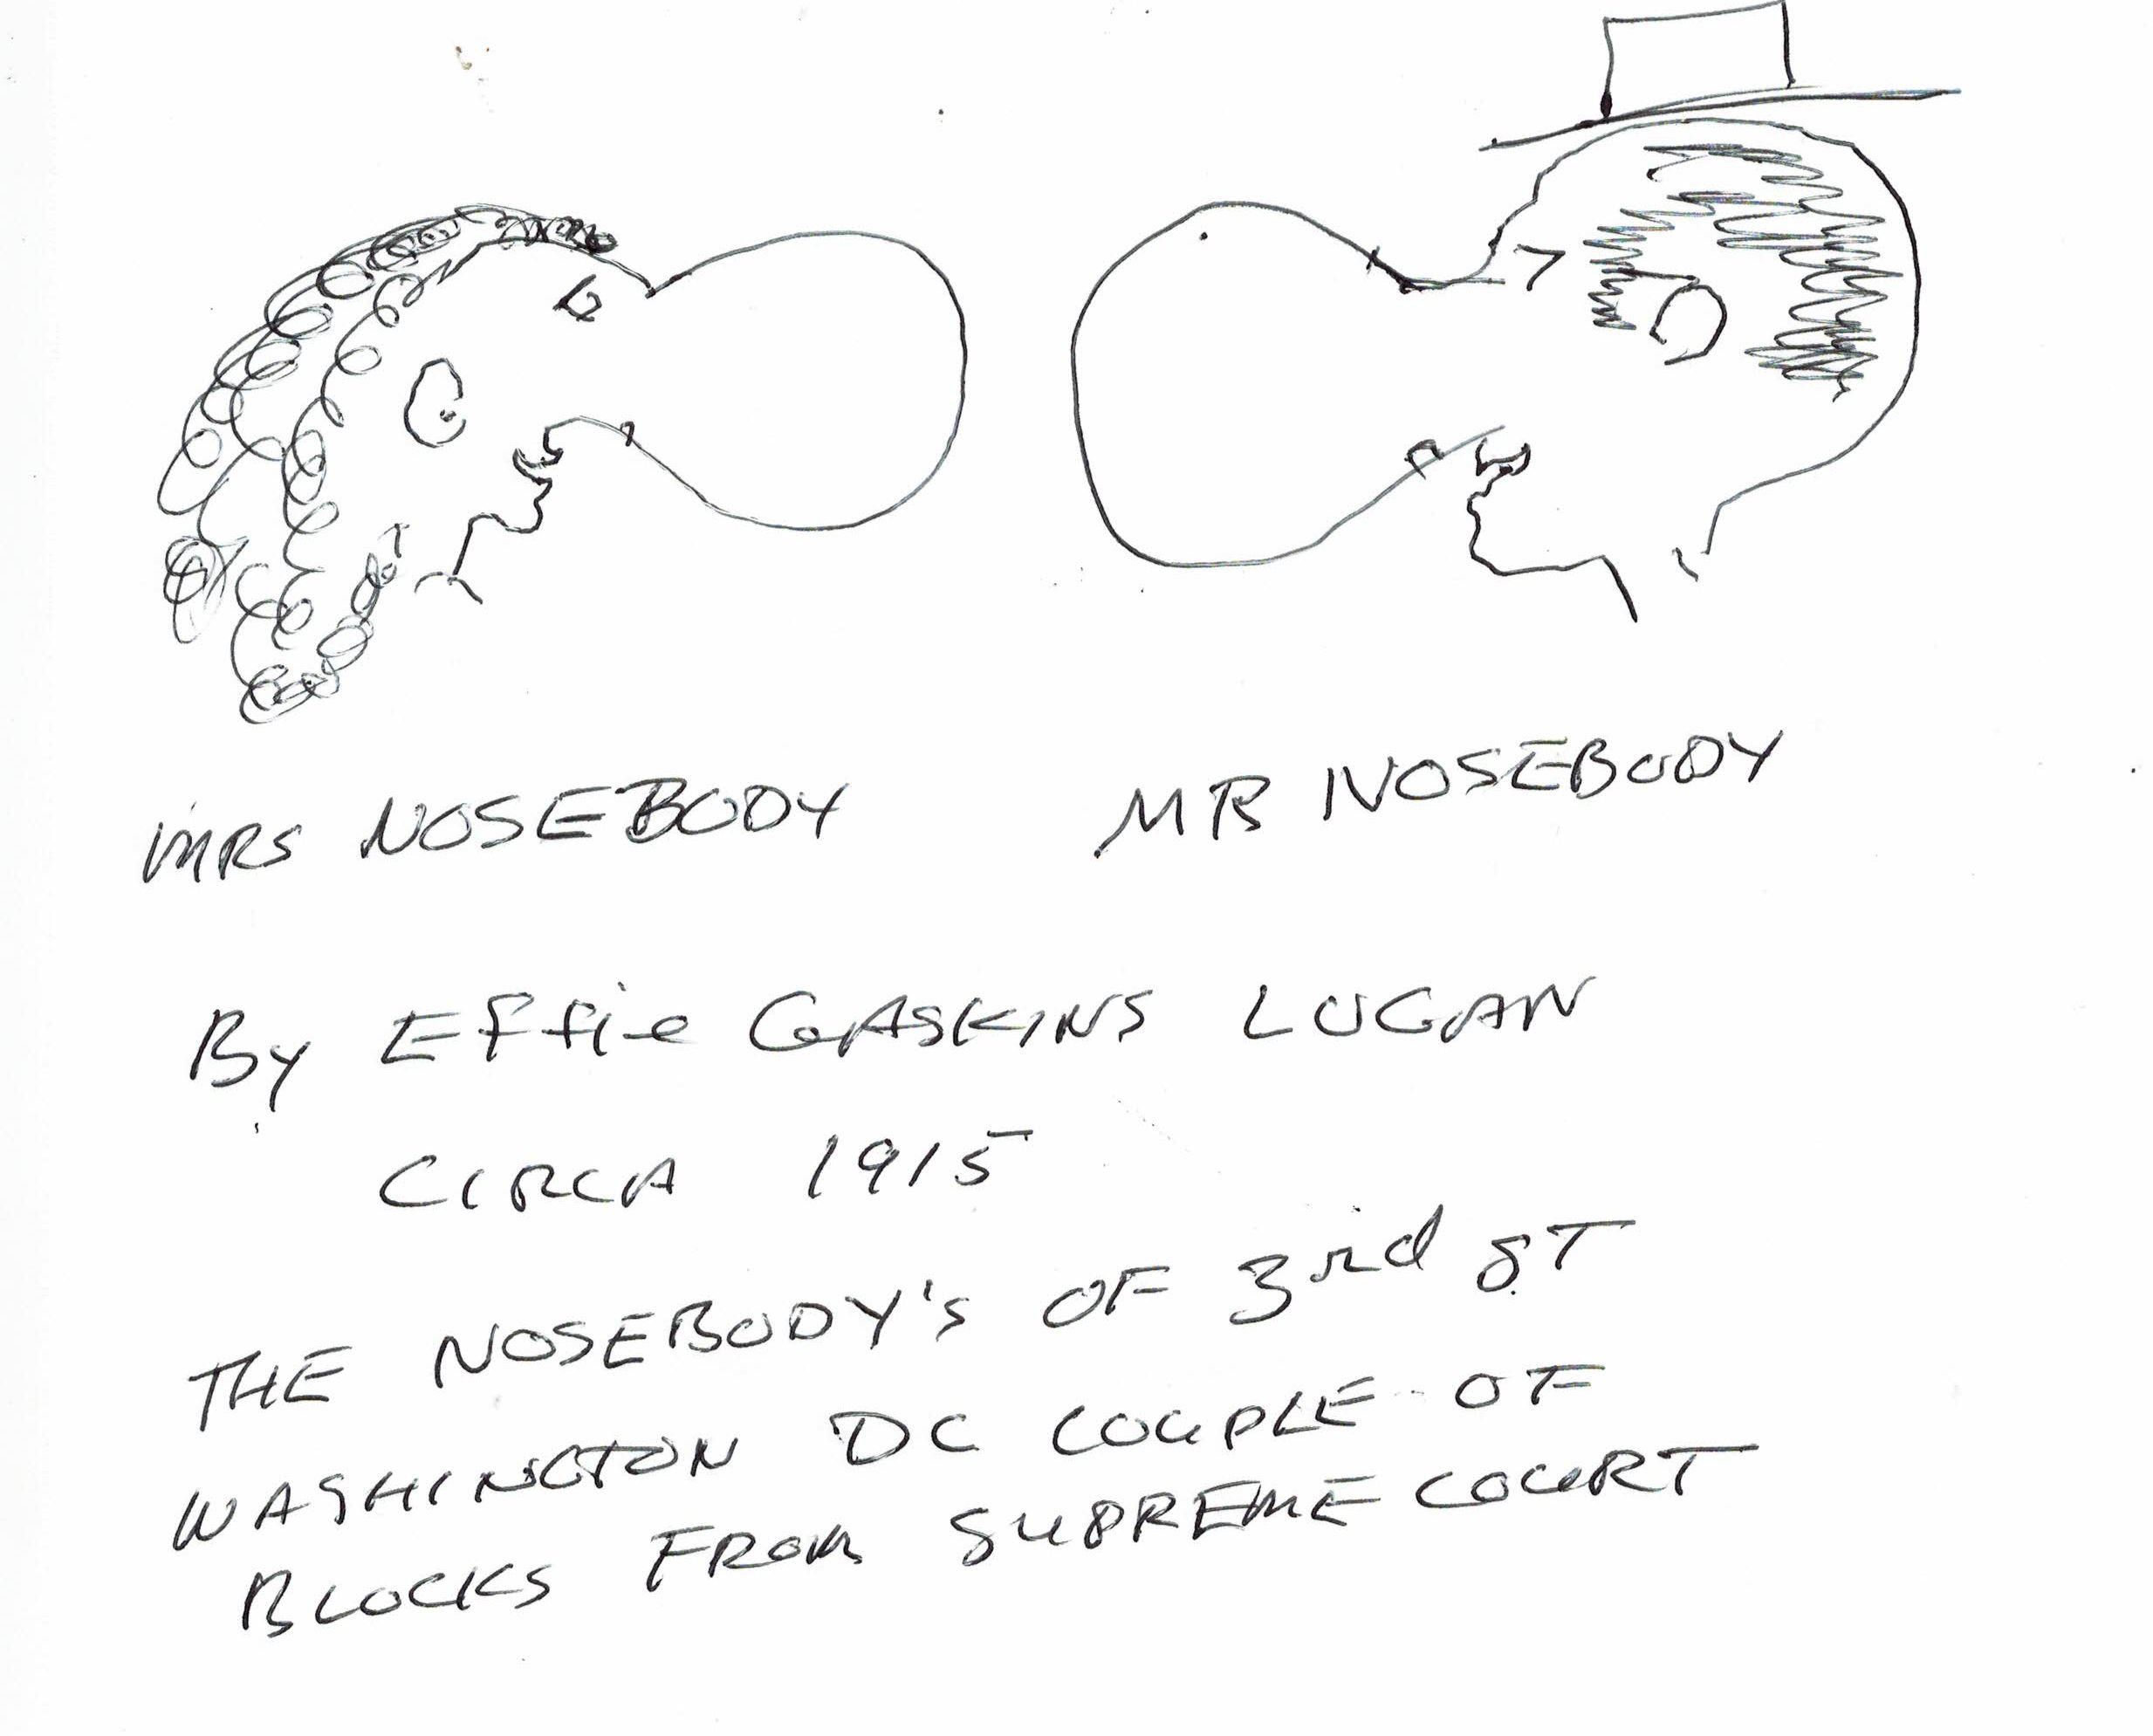 MRS NOSEBODY
MR NOSEBODY
By Effie GASKINS LOGAN
CIRCA 1915
THE NOSEBODY'S OF 3rd ST
WASHINGTON DC COUPLE OF
BLOCKS FROM SUPREME COURT